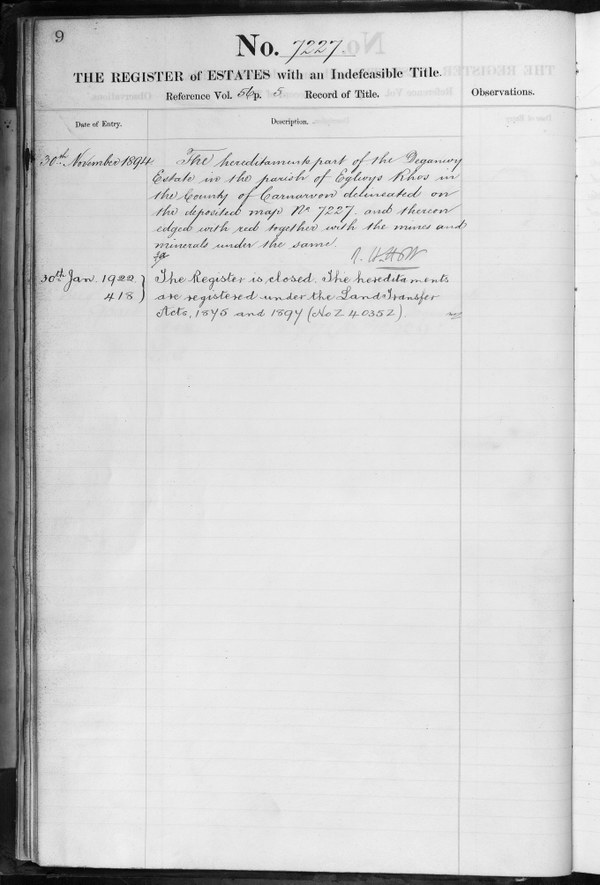 9
No. 7227
THE REGISTER of ESTATES with an Indefeasible Title.
Reference Vol. 56 p. 5 Record of Title.
Observations.
Date of Entry.
Description.
30th November 1894
The hereditaments part of the Deganwy
Estate in the parish of Eglwys Rhos in
the County of Carnarvon delineated on
the deposited map No 7227 and thereon
edged with red together with the mines and
minerals under the same.
30th Jan. 1922
418
The Register is closed. The hereditaments
are registered under the Land Transfer
Acts, 1875 and 1897 (No Z 40352).